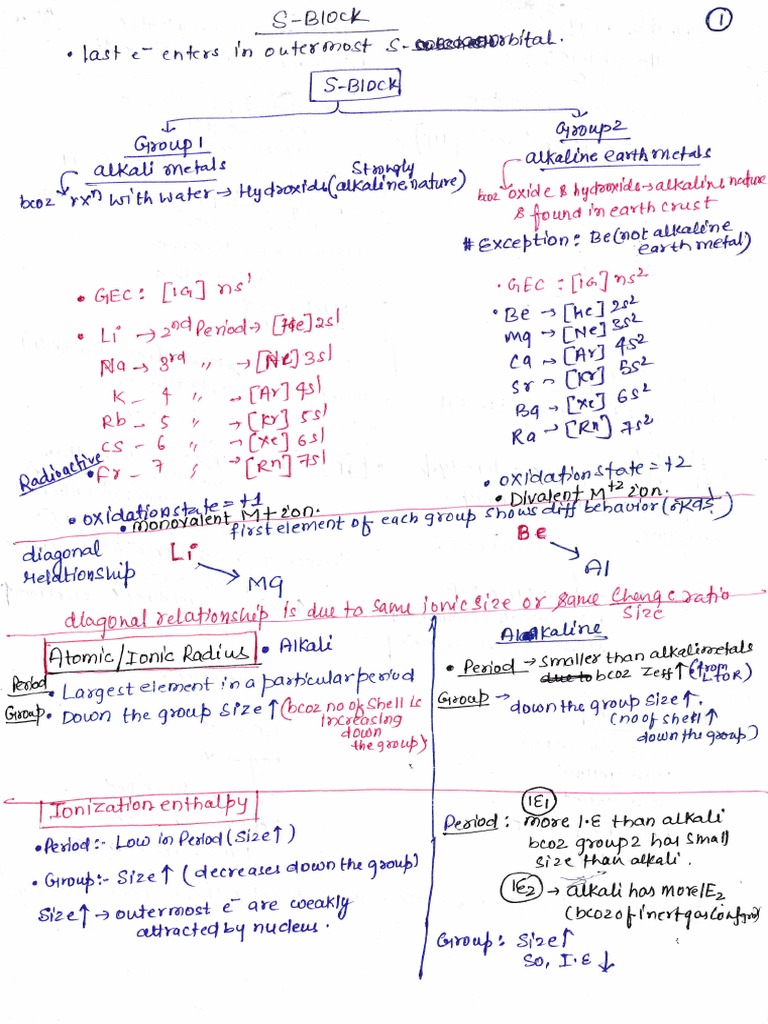 S-BLOCK
1
• last e⁻ enters in outermost S- orbital.
S-BLOCK
Group 1
alkali metals
bcoz rxⁿ with water → Hydroxids (Strongly alkaline nature)
Group 2
alkaline earth metals
bcoz oxide & hydroxids → alkaline nature
& found in earth crust
# Exception: Be (not alkaline
earth metal)
• GEC: [IG] ns¹
• Li → 2nd Period → [He] 2s1
Na → 3rd " → [Ne] 3s1
K - 4 " → [Ar] 4s1
Rb - 5 " → [Kr] 5s1
Cs - 6 " → [Xe] 6s1
Radioactive
• Fr - 7 " → [Rn] 7s1
• oxidation state = +1
• monovalent M+ ion.
• GEC: [IG] ns²
• Be → [He] 2s²
Mg → [Ne] 3s²
Ca → [Ar] 4s²
Sr → [Kr] 5s²
Ba → [Xe] 6s²
Ra → [Rn] 7s²
• oxidation state = +2
• Divalent M+2 ion.
first element of each group shows diff behavior
diagonal
relationship
Li → Mg
Be → Al
diagonal relationship is due to same ionic size or same Charge ratio
Size
Atomic/Ionic Radius
• Alkali
Period • Largest element in a particular period
Group • Down the group size ↑ (bcoz no of shell is
increasing
down
the group)
Alkaline
• Period → Smaller than alkali metals
due to bcoz Zeff ↑ (from
LTOR)
Group → down the group size ↑.
(no of shell ↑
down the group)
Ionization enthalpy
• Period:- Low in Period (Size ↑)
• Group:- Size ↑ (decreases down the group)
Size ↑ → outermost e⁻ are weakly
attracted by nucleus.
IE1
Period: more I.E than alkali
bcoz group 2 has small
size than alkali.
IE2 → alkali has more IE2
(bcoz of inert gas confgn)
Group: Size ↑
So, I.E ↓